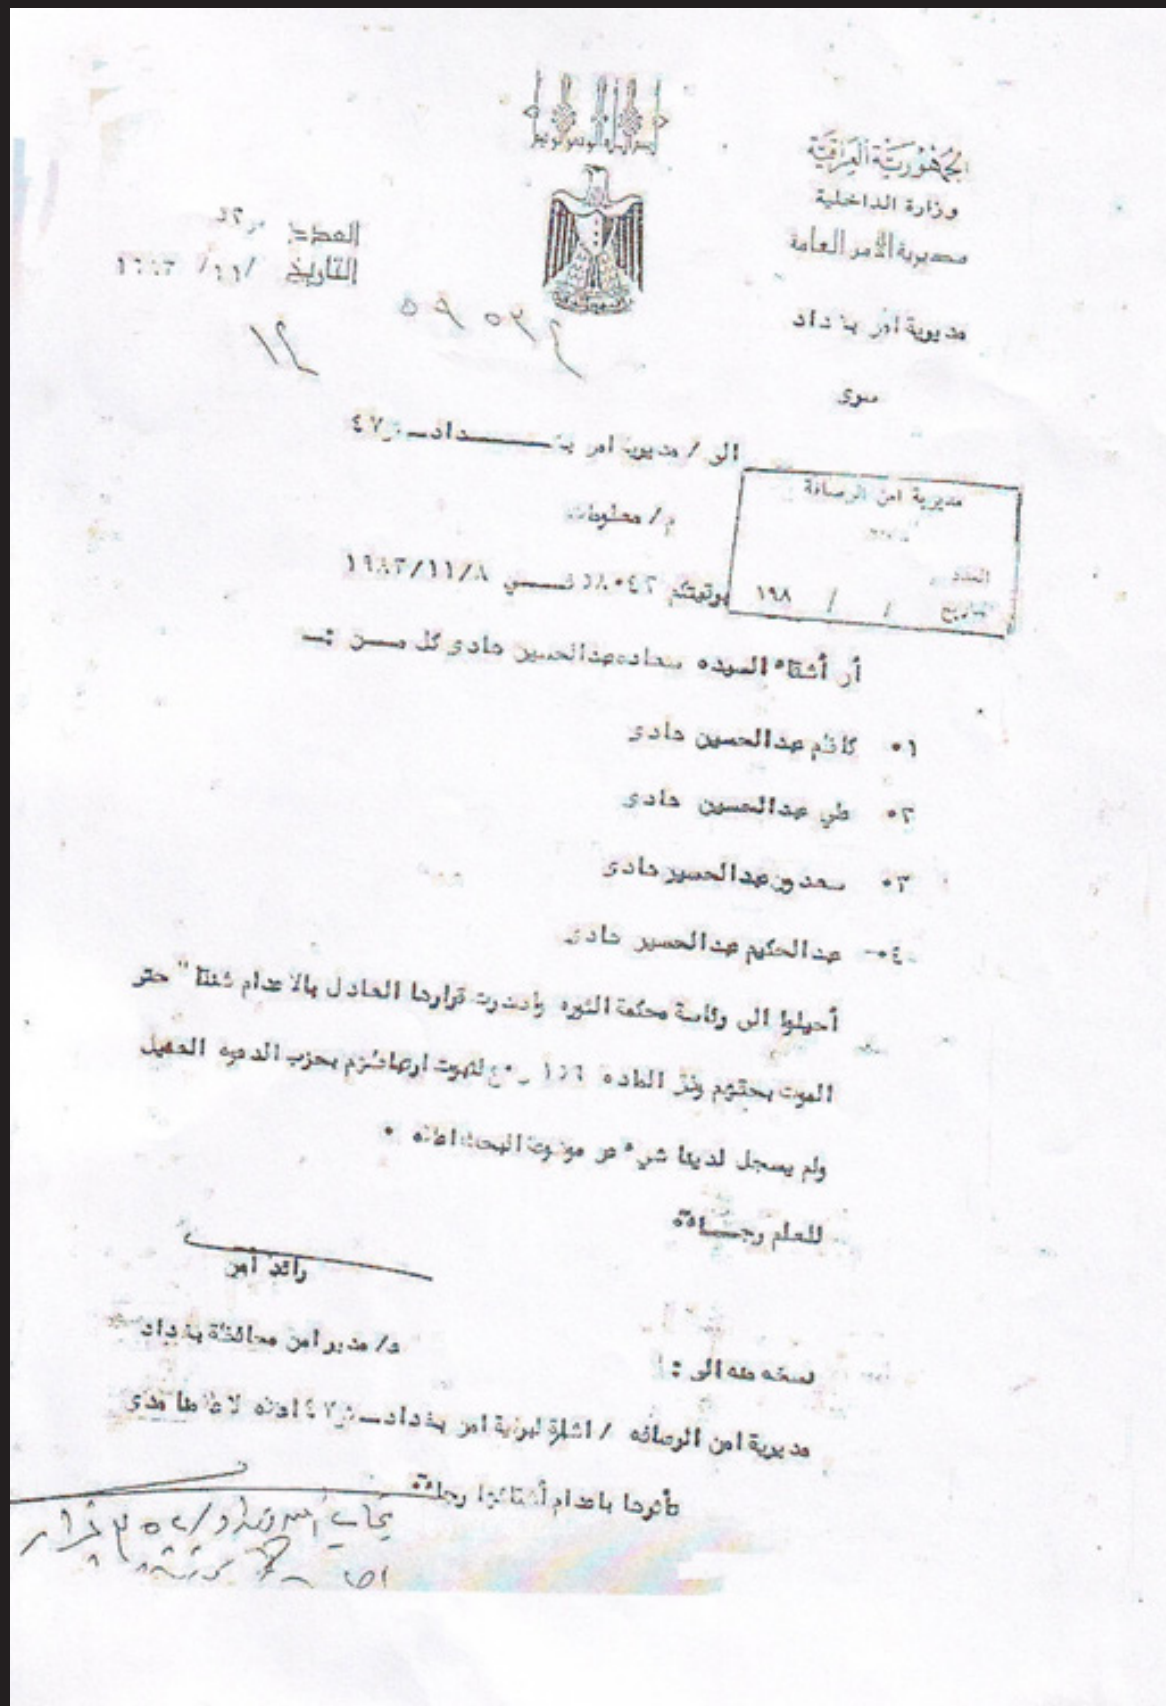 الجمهورية العراقية
وزارة الداخلية
مديرية الأمن العامة
مديرية امن بغداد
سري
العدد
التاريخ / ١١/ ١٩٨٣
١٢
الى / مديرية امن بغـــداد ـ ٤٧
م/ معلومات
مديرية امن الرصافة
العدد
التاريخ / / ١٩٨
برقيتكم في ١٩٨٣/١١/٨
أن أشقاء السيده سعاده عبدالحسين هادي كل مـــن :ـ
٠١ كاظم عبدالحسين هادي
٠٢ علي عبدالحسين هادي
٠٣ سعدون عبدالحسين هادي
٤- عبدالحكيم عبدالحسين هادي
أحيلوا الى رئاسة محكمة الثوره واصدرت قرارها العادل بالاعدام شنقا" حتى
الموت بحقهم وفق الماده ١٥٦ لثبوت ارتباطهم بحزب الدعوه العميل
ولم يسجل لدينا شيء عن موضوعة البحث اعلاه ٠
للعلم رجـــاء
رائد أمن
ع/ مدير امن محافظة بغداد
نسخه منه الى :
مديرية امن الرصافه / اشارة لبرقية امن بغداد ـ ٤٧ اعلاه لاعلامنا مدى
تأثرها باعدام أشقائها رجاء